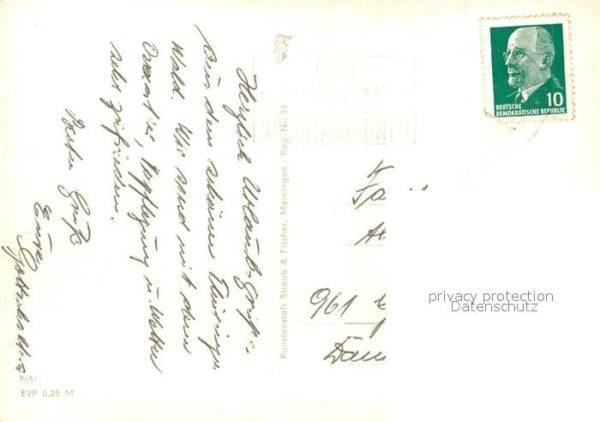 Herzlich Urlaubsgrüße
aus dem schönen Thüringer
Wald. Wir sind mit dem
Quartier, Verpflegung u. Wetter
sehr zufrieden.
Beste Grüße
Kunstanstalt Straub & Fischer, Meiningen - Reg.-Nr.
DEUTSCHE
DEMOKRATISCHE REPUBLIK
10
961
privacy protection
Datenschutz
7651
EVP 0,25 M